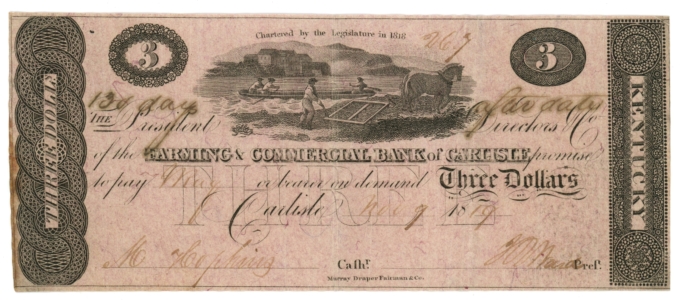 Chartered by the Legislature in 1818
267
3
3
130 days after date
THE President Directors & Co
of the FARMING & COMMERCIAL BANK of CARLISLE promise
to pay or bearer on demand Three Dollars
THREE
Carlisle Nov 9 1819
M Hopkins Cash.r Pres.t
Murray Draper Fairman & Co.
THREE DOLLS
KENTUCKY